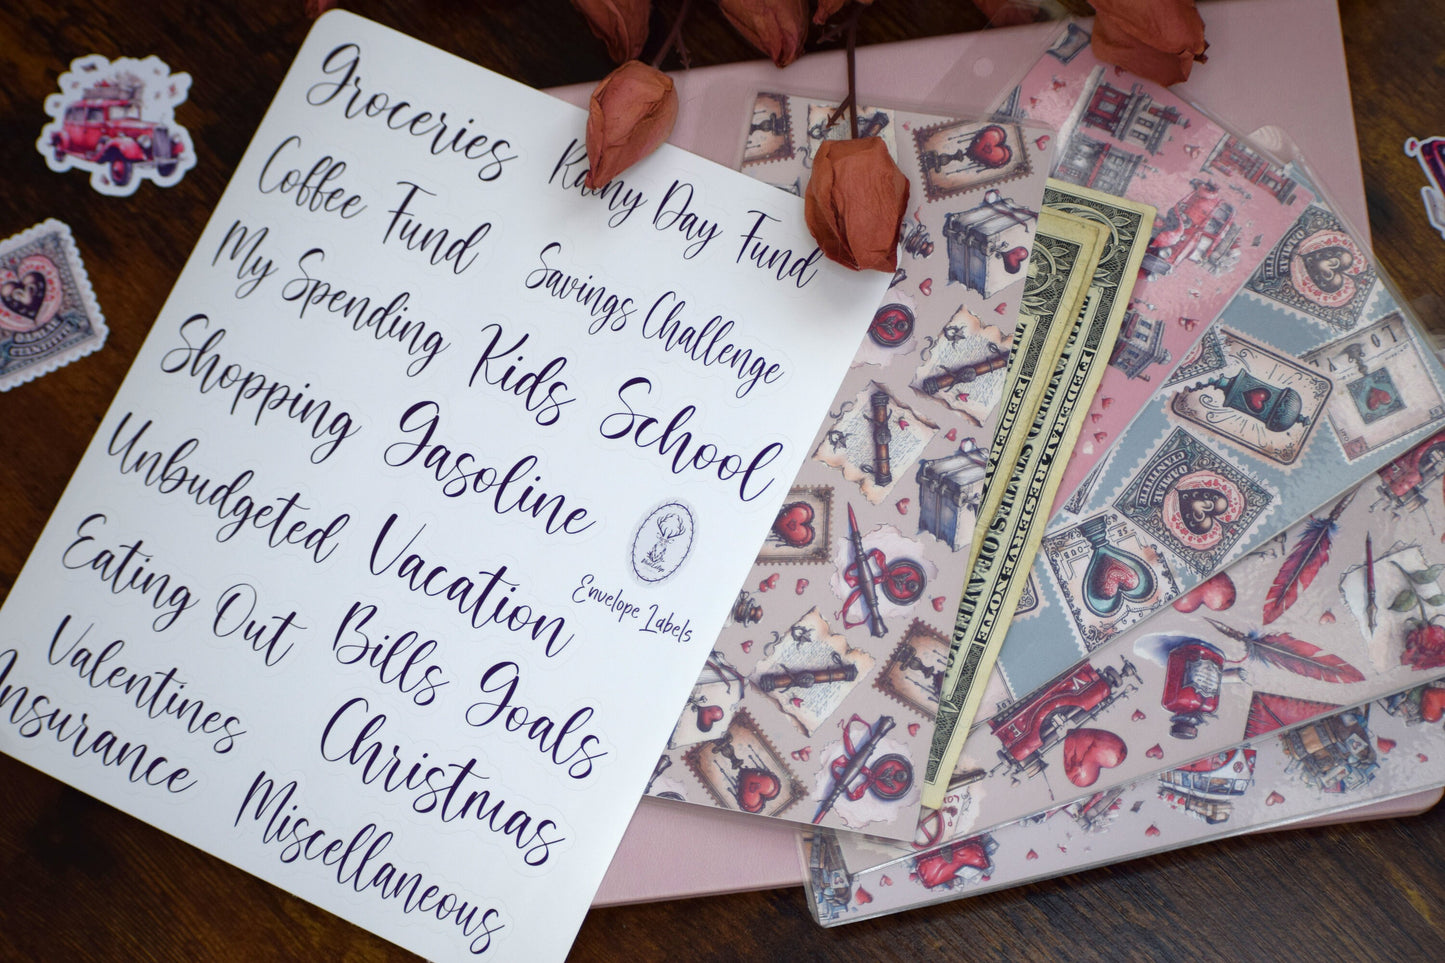 Groceries
Rainy Day Fund
Coffee Fund
Savings Challenge
My Spending
Kids
School
Shopping
Gasoline
Unbudgeted
Vacation
Envelope Labels
Eating Out
Bills
Goals
Valentines
Christmas
Insurance
Miscellaneous
FEDERAL RESERVE NOTE
THE UNITED STATES OF AMERICA